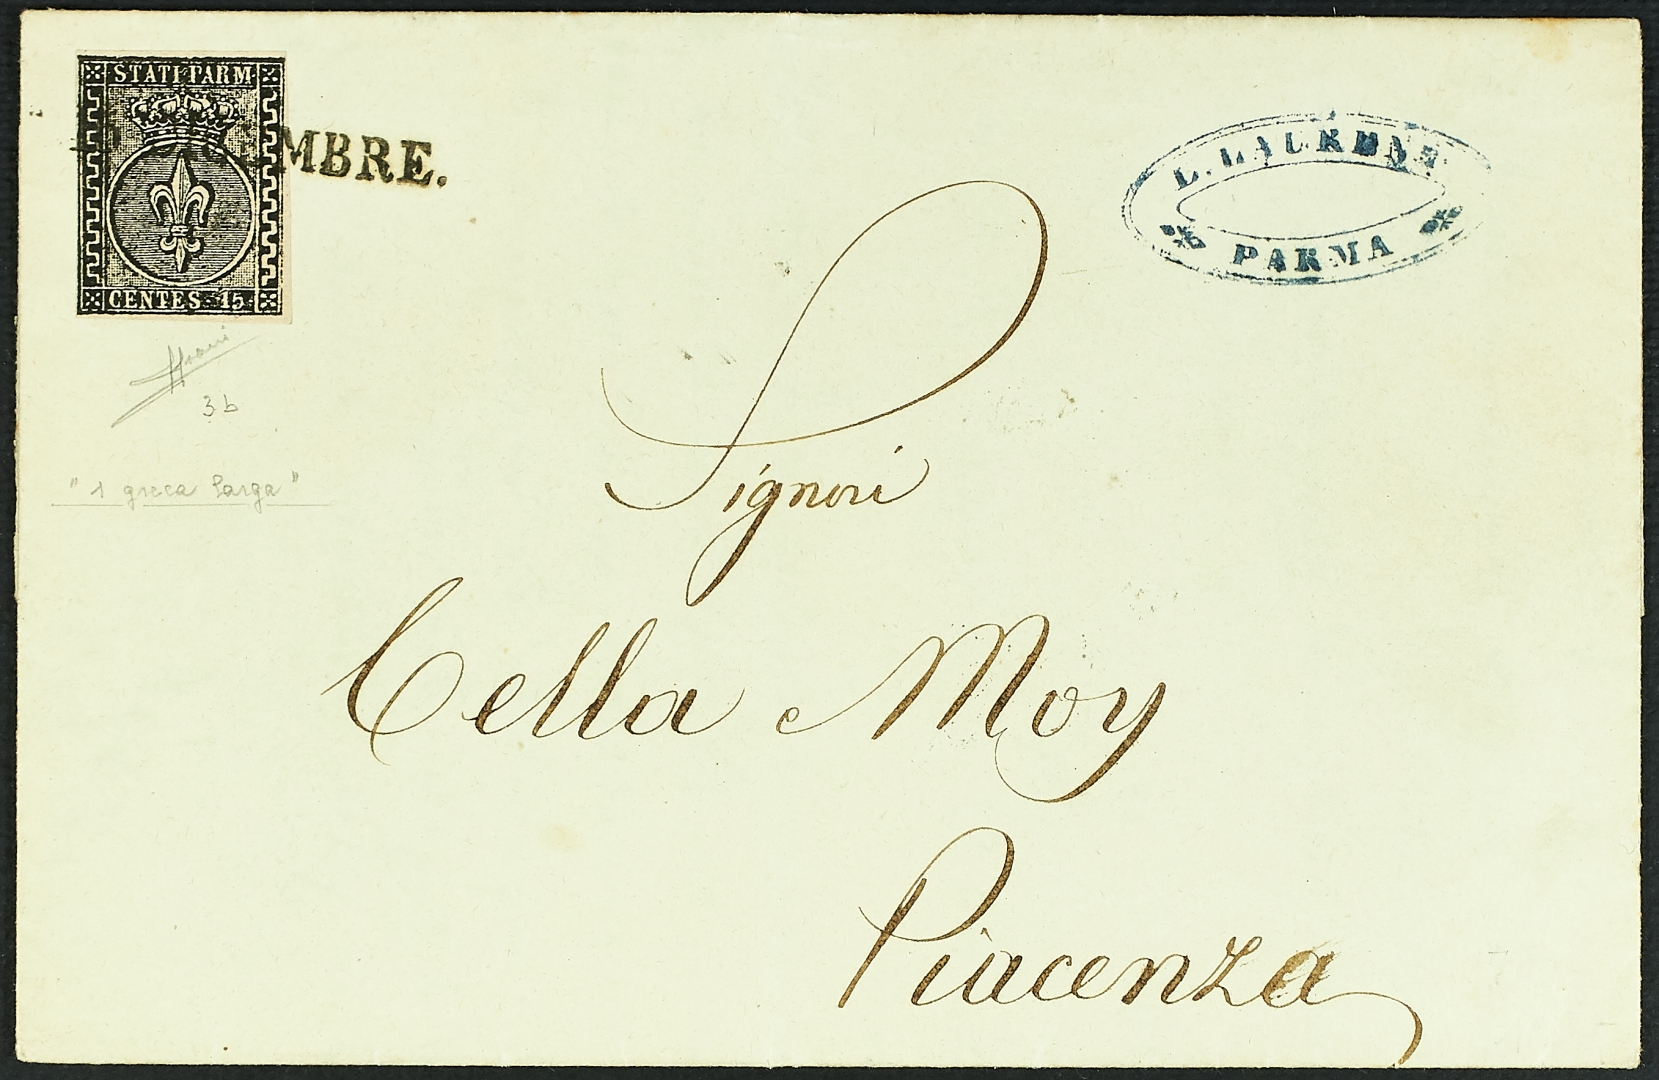 STATI PARM
MBRE.
CENTES. 15
L. LAURENT
PARMA
3 b
" 1 greca larga "
Signori
Cella e Moy
Piacenza